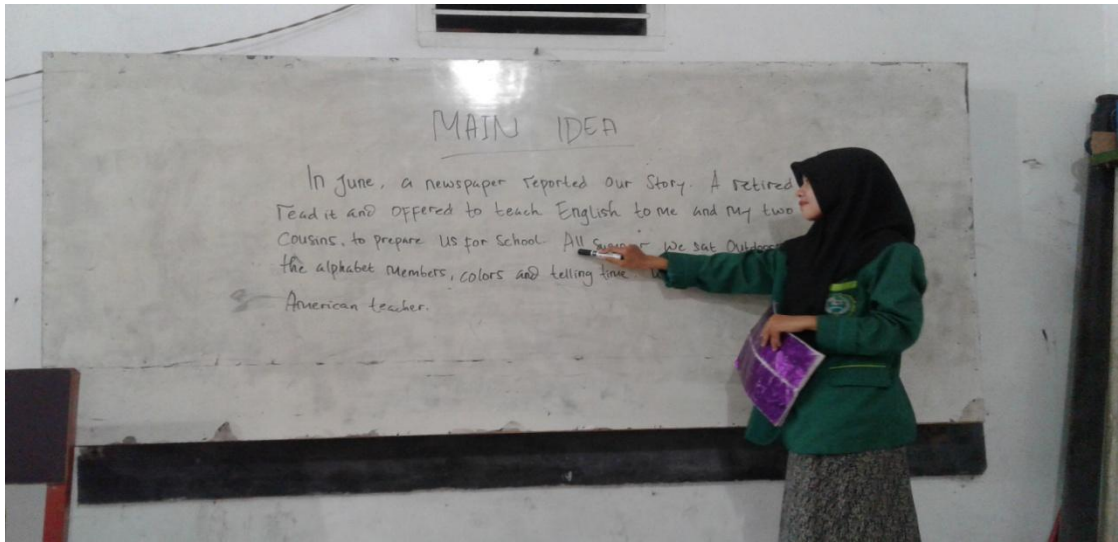 MAIN IDEA
In June, a newspaper reported our Story. A retired
read it and offered to teach English to me and my two
Cousins, to prepare us for School. All Summer we sat Outdoors
the alphabet Members, colors and telling time.
American teacher.